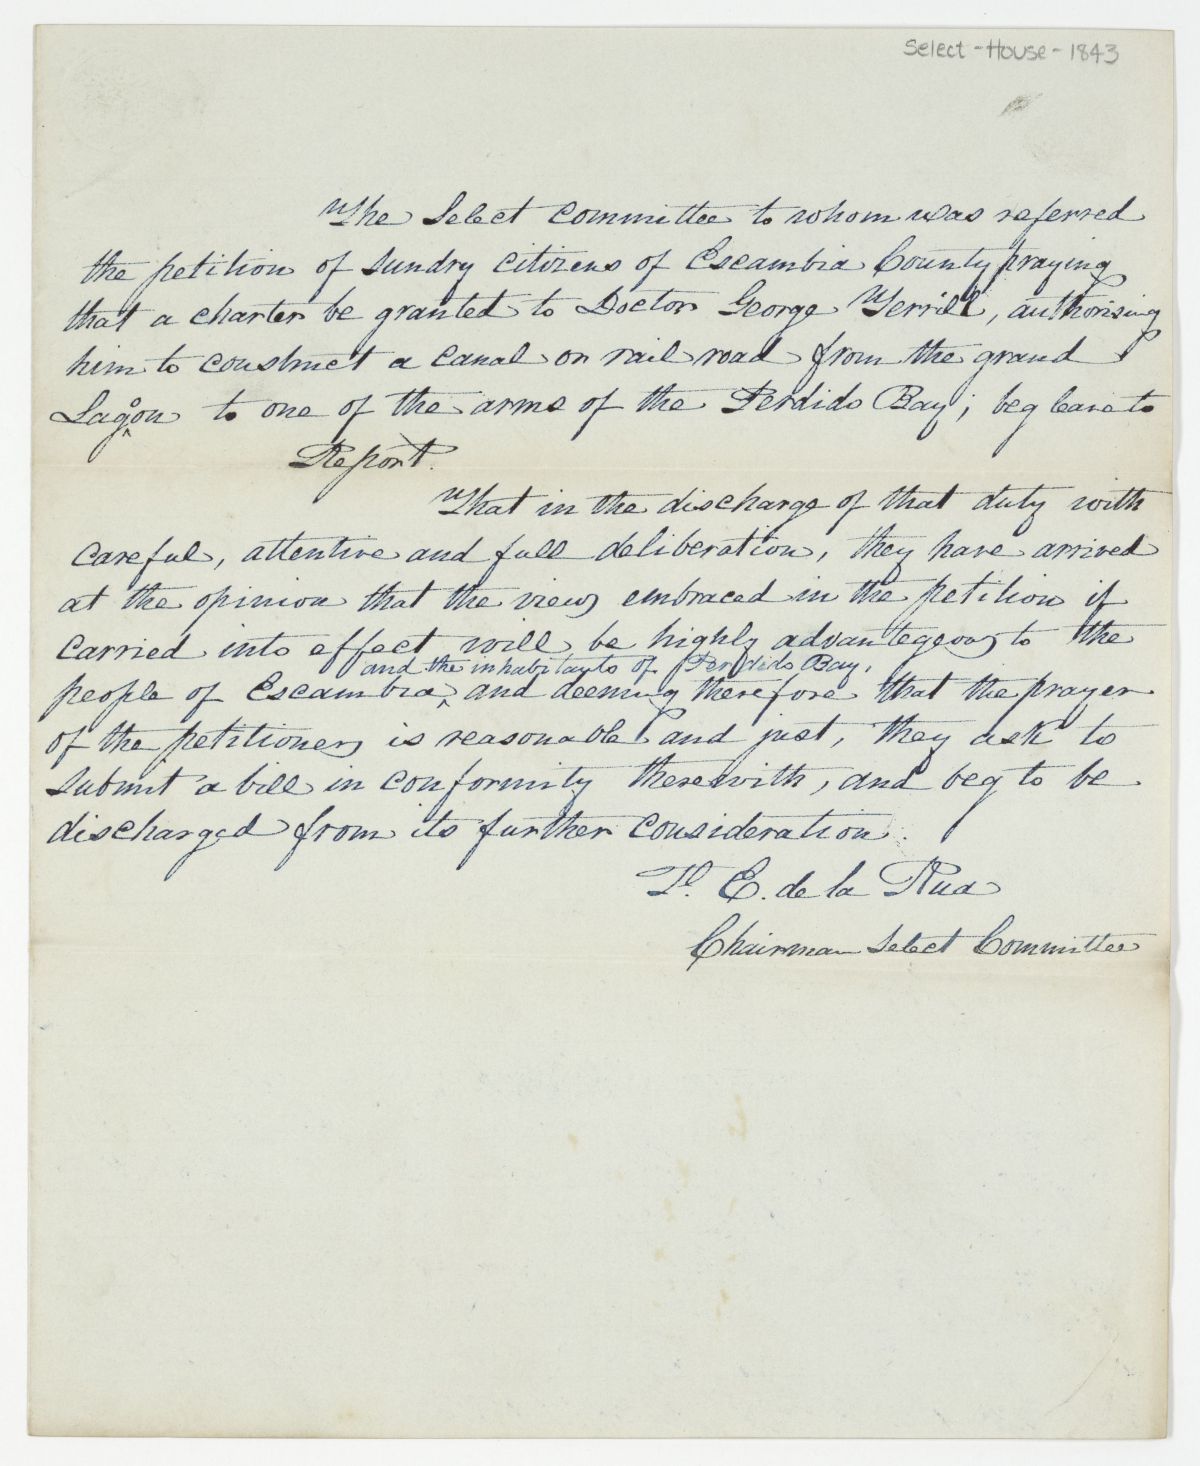 Select-House-1843
The Select committee to whom was referred
the petition of sundry citizens of Escambia County praying
that a charter be granted to Doctor George Terrill, authorising
him to construct a canal or rail road from the grand
Lagoon to one of the arms of the Perdido Bay; beg leave to
Report.
That in the discharge of that duty with
careful, attentive and full deliberation, they have arrived
at the opinion that the views embraced in the petition if
carried into effect will be highly advantegeous to the
and the inhabitants of Perdido Bay,
people of Escambia ^ and deeming therefore that the prayer
of the petitioners is reasonable and just, they ask to
submit a bill in conformity therewith, and beg to be
discharged from its further consideration.
E. de la Rua
Chairman Select Committee